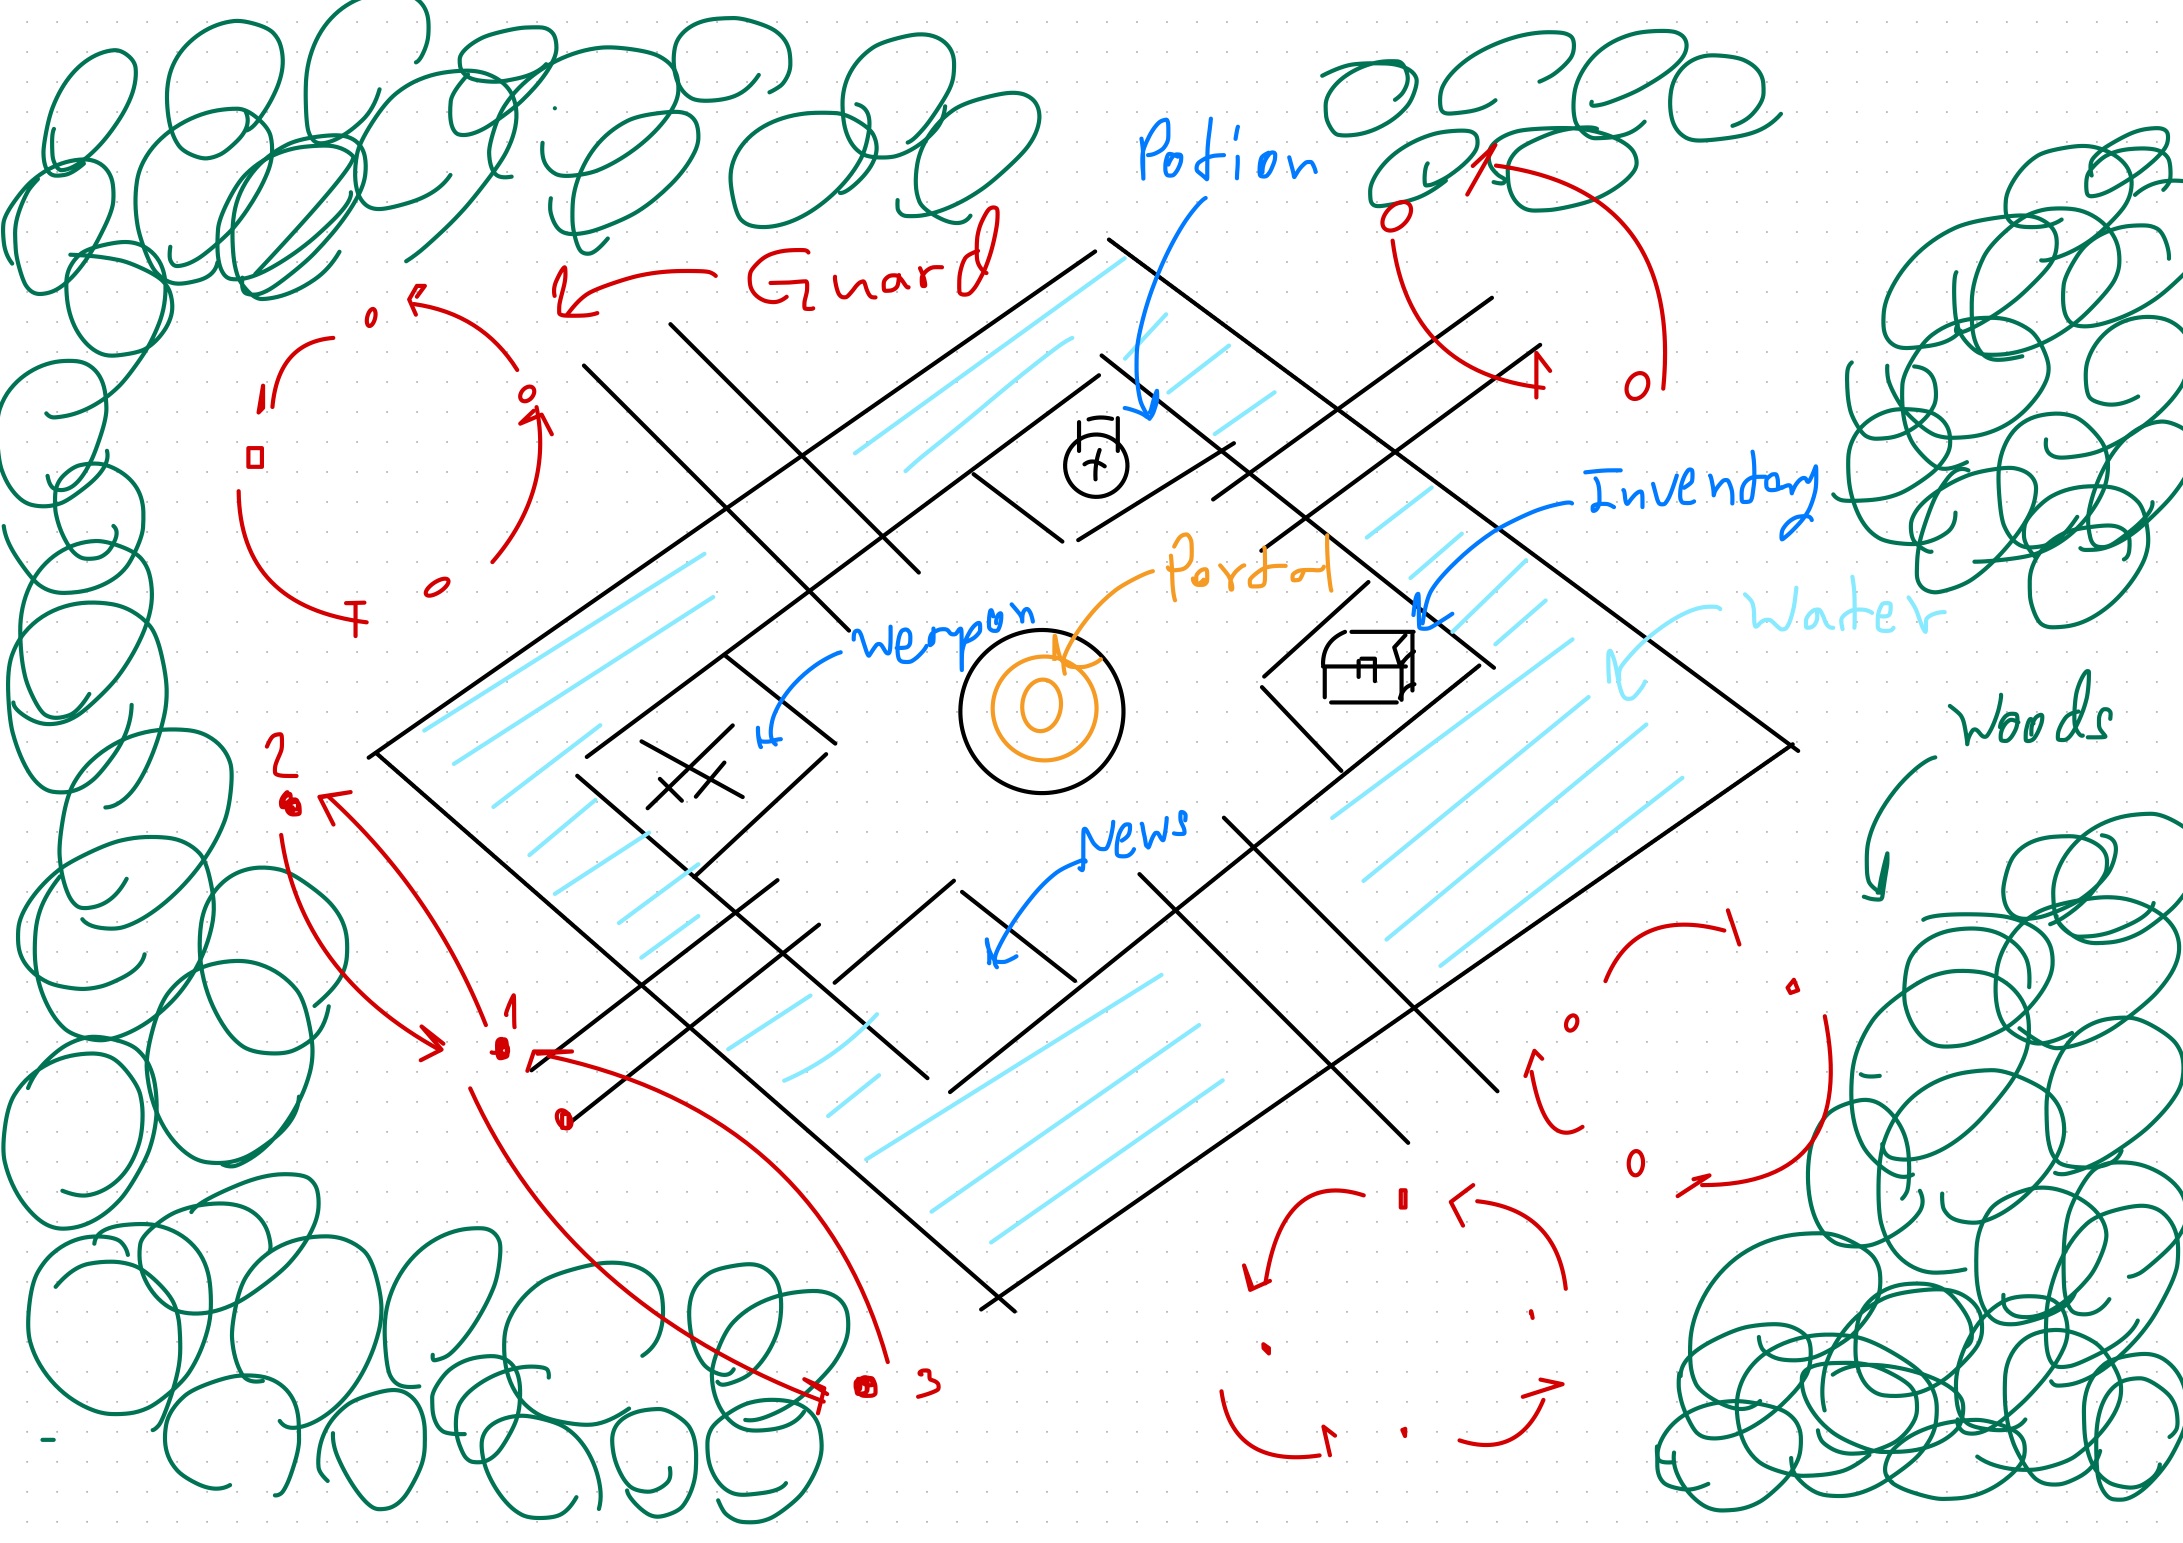 Potion
Guard
Inventory
Portal
Weapon
Water
Woods
2
News
1
3